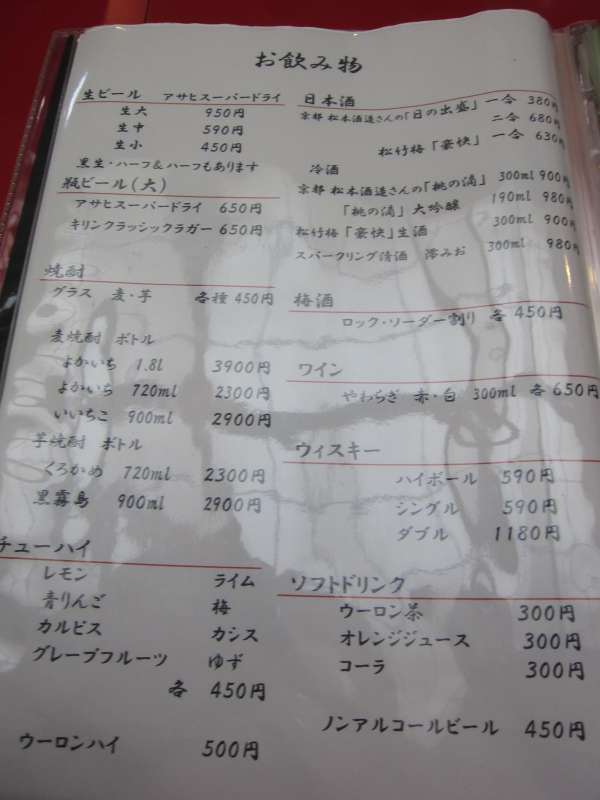 お飲み物
生ビール アサヒスーパードライ
生大 950円
生中 590円
生小 450円
黒生・ハーフ&ハーフもあります
瓶ビール(大)
アサヒスーパードライ 650円
キリンクラッシックラガー 650円
焼酎
グラス 麦・芋 各種 450円
麦焼酎 ボトル
よかいち 1.8l 3900円
よかいち 720ml 2300円
いいちこ 900ml 2900円
芋焼酎 ボトル
くろかめ 720ml 2300円
黒霧島 900ml 2900円
チューハイ
レモン ライム
青りんご 梅
カルピス カシス
グレープフルーツ ゆず
各 450円
ウーロンハイ 500円
日本酒
京都 松本酒造さんの「日の出盛」 一合 380円
二合 680円
松竹梅「豪快」 一合 630円
冷酒
京都 松本酒造さんの「桃の滴」 300ml 900円
「桃の滴」大吟醸 190ml 980円
松竹梅「豪快」生酒 300ml 900円
スパークリング清酒 澪みお 300ml 980円
梅酒
ロック・ソーダー割り 各 450円
ワイン
やわらぎ 赤・白 300ml 各 650円
ウィスキー
ハイボール 590円
シングル 590円
ダブル 1180円
ソフトドリンク
ウーロン茶 300円
オレンジジュース 300円
コーラ 300円
ノンアルコールビール 450円